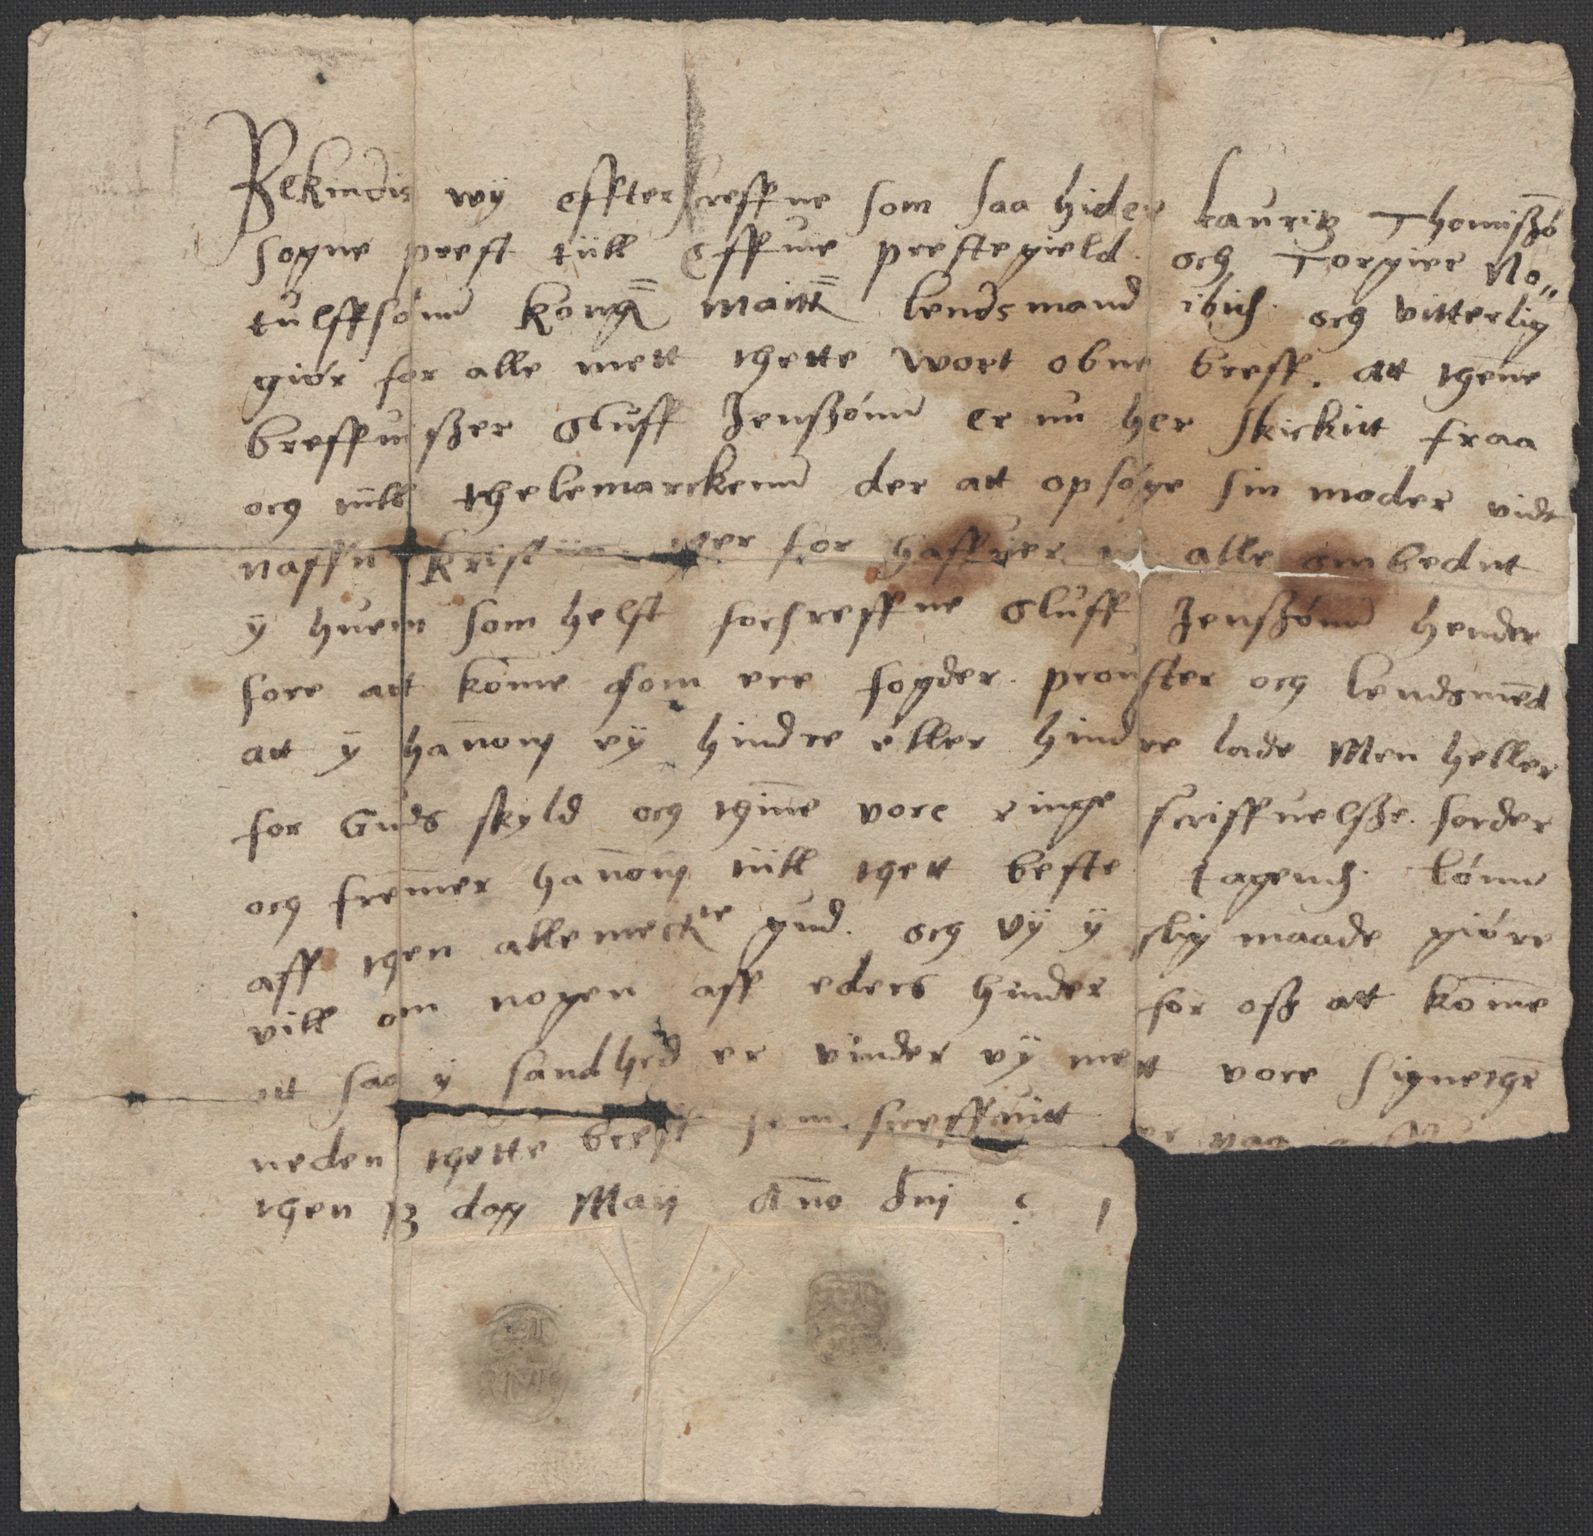 Bekindis wÿ effterscreffne som saa hider lauritz Thomißø̄
sogne prest tiill Effuie prestegield. och Torgier No„
tulffsønn kong̃ maiitt̃ lendsmand ibid̃. och vitterlig
giør for alle mett thette wort obne breff. att thēne
breffuißer Oluff Jenßønn er nu her skickiit fraa
och tiill thelemarckenn der att opsøge sin moder vidt
naffn krist ther for haffuer alle ombedüt
ÿ huem som helst forschreffne Oluff Jenßønn hender
fore att kōme som ere fogder. prouster och lendsmēd
att ÿ hañom eÿ hindre eller hindre lade Men heller
for Guds skyld och thine vore ringe scriffuelße. forder
och fremmer hañom tiill thett beste tagendȝ. lønn
aff then allemeckte gud. och vÿ ÿ slig maade giøre
vill om nogen aff eders hender for oß att kōme
att saa ÿ sandhed er vinder vÿ mett vore signethe
neden thette breff som screffuitt
then 13 dag Maij Āno dn̄j